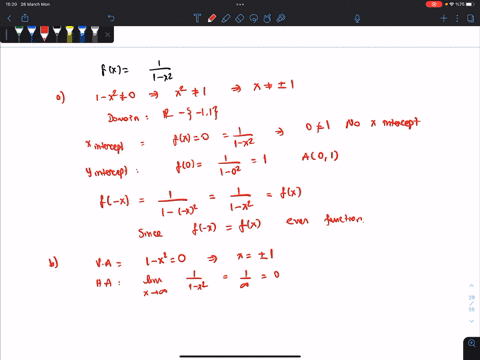 15:29 28 March Mon
%75
f(x) = 1/(1-x²)
a) 1-x² ≠ 0 ⇒ x² ≠ 1 ⇒ x ≠ ±1
Domain: R - {-1,1}
x intercept = f(x) = 0 = 1/(1-x²) ⇒ 0 ≠ 1 No x intercept
y intercept: f(0) = 1/(1-0²) = 1 A(0,1)
f(-x) = 1/(1-(-x)²) = 1/(1-x²) = f(x)
Since f(-x) = f(x) even function.
b) V.A = 1-x² = 0 ⇒ x = ±1
H.A: lim x→∞ 1/(1-x²) = 1/∞ = 0